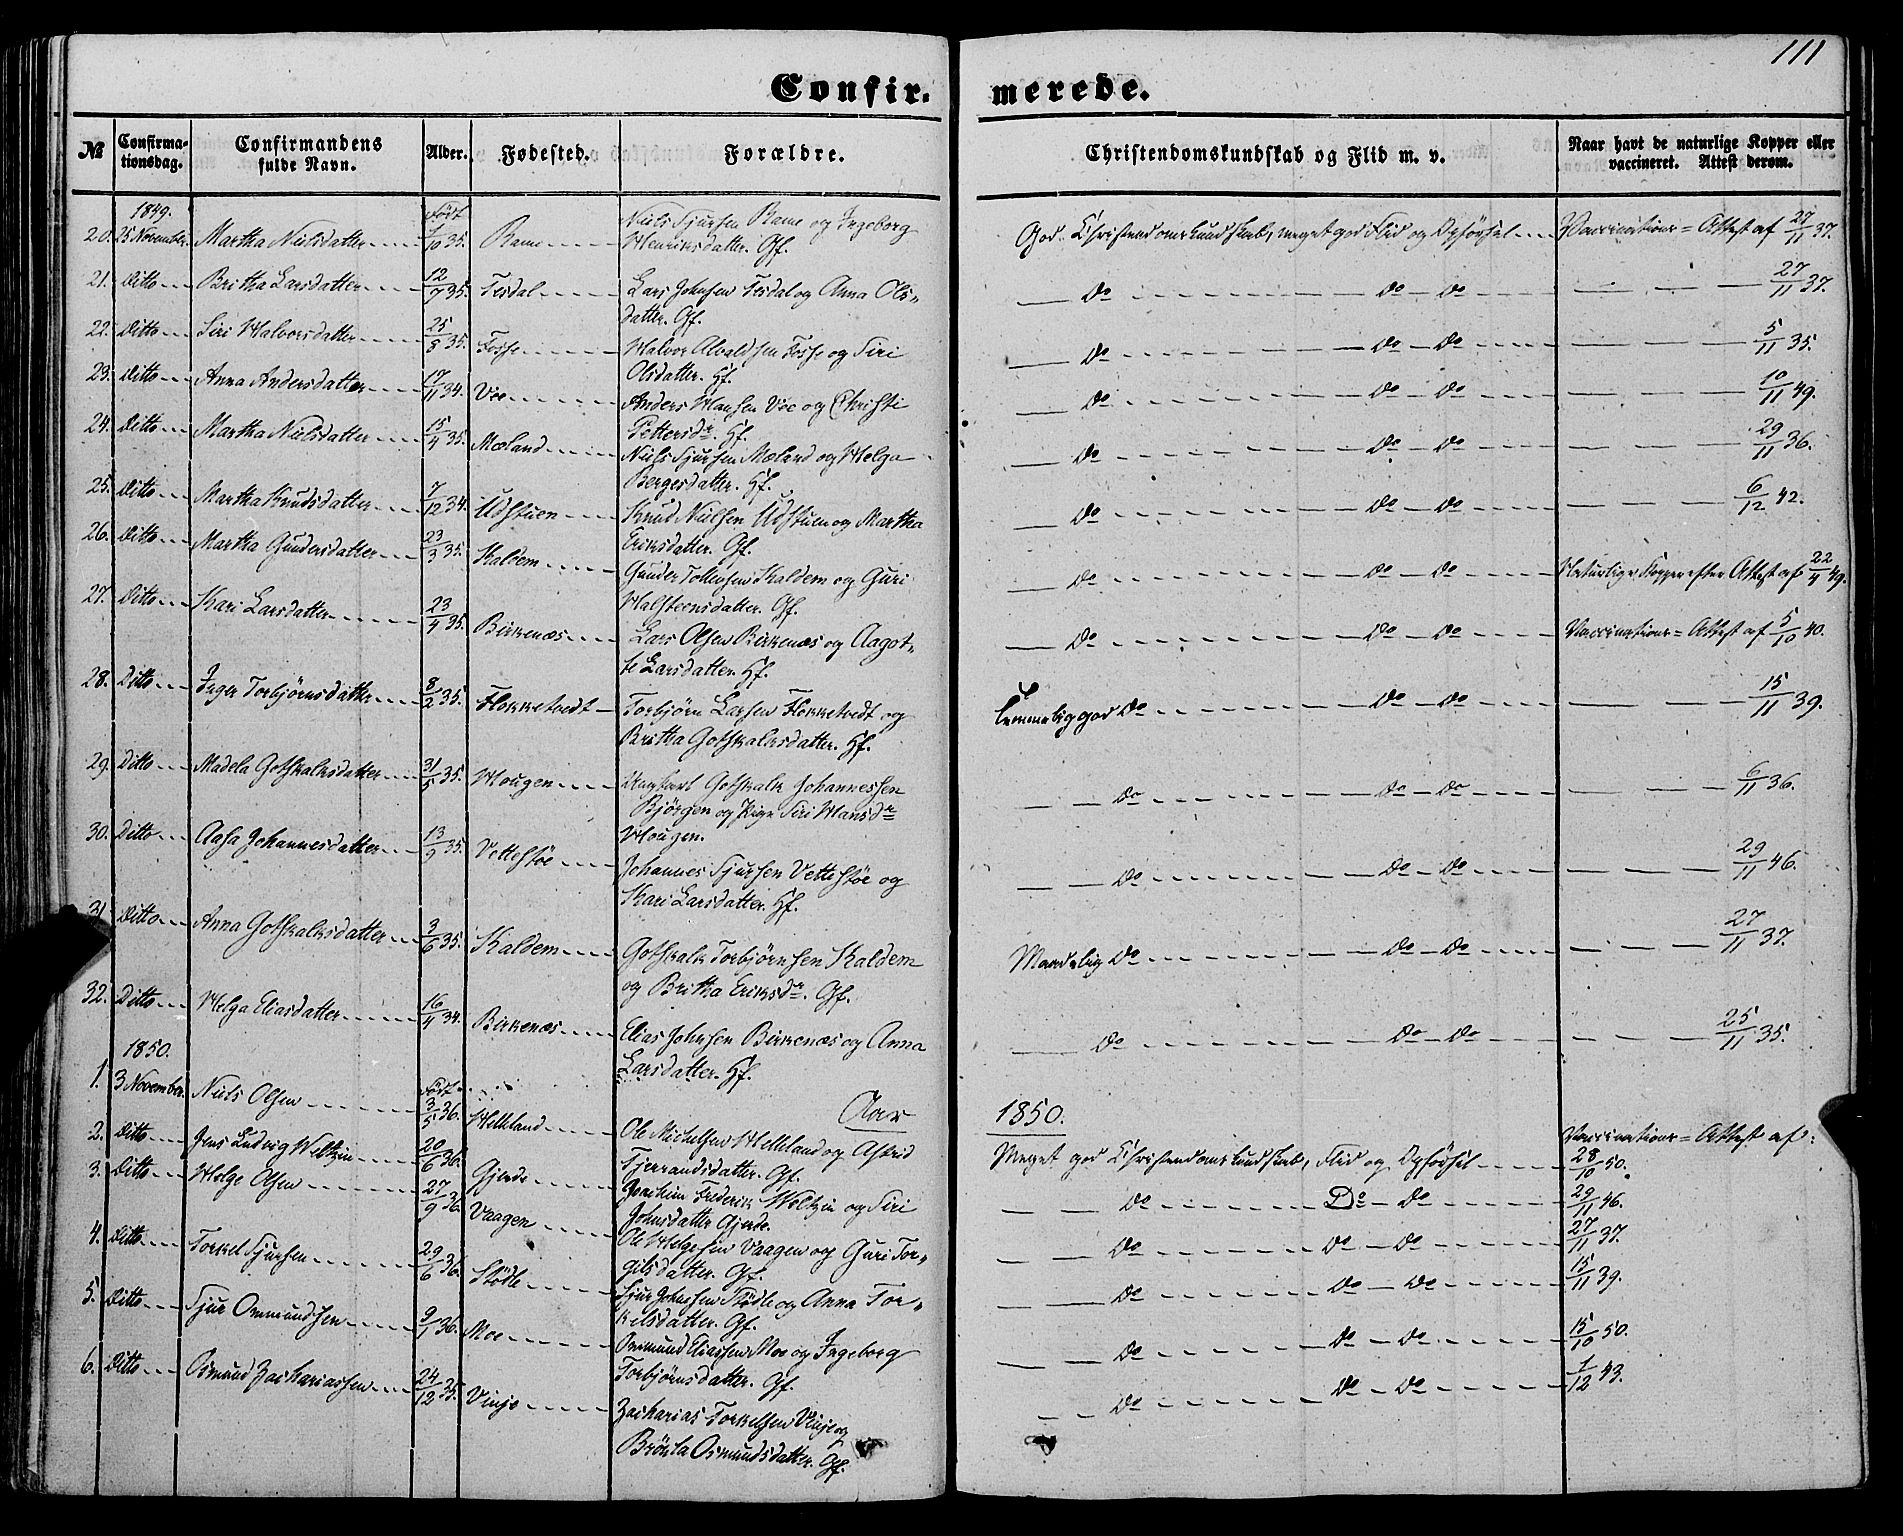 111
Confirmerede.
№ Confirmationsdag. Confirmandens fulde Navn. Alder. Fødested. Forældre. Christendomskundskab og Flid m. v. Naar havt de naturlige Kopper eller vaccineret. Attest derom.
1849. Født
20. 25 November. Martha Nielsdatter 1/10 35. Rame Niels Sjursen Rame og Ingeborg Henriksdatter. Gf. God Christendomskundskab, meget god Flid og Opførsel Vaccinations=Attest af 27/11 37.
21. Ditto Britha Larsdatter 12/7 35. Tesdal Lars Johnsen Tesdal og Anna Olsdatter. Gf. Do Do Do 27/11 37.
22. Ditto Siri Halvorsdatter 25/3 35. Fosse Halvor Alvaldsen Fosse og Siri Olsdatter. Hf. Do Do Do 5/11 35.
23. Ditto Anna Andersdatter 17/11 34. Vee Anders Hansen Vee og Christi Pettersdr. Hf. Do Do Do 10/11 49.
24. Ditto Martha Nielsdatter 15/4 35. Mæland Niels Sjursen Mæland og Helga Bergesdatter. Hf. Do Do Do 29/11 36.
25. Ditto Martha Knudsdatter 7/12 34. Udstuen Knud Nielsen Udstuen og Martha Eriksdatter. Gf. Do Do Do 6/12 42.
26. Ditto Martha Gundersdatter 23/3 35. Skaldem Gunder Tollevsen Skaldem og Guri Halsteensdatter. Gf. Do Do Do Naturlige Kopper efter Attest af 22/4 49.
27. Ditto Kari Larsdatter 23/4 35. Birkenæs Lars Olsen Birkenæs og Aagotte Larsdatter. Hf. Do Do Do Vaccinations=Attest af 5/10 40.
28. Ditto Inger Torbjørnsdatter 8/2 35. Flokketvedt Torbjørn Larsen Flokketvedt og Britha Gotskalksdatter. Hf. Temmelig god Do Do Do 15/11 39.
29. Ditto Madela Gotskalksdatter 31/5 35. Hougen Ungkarl Gotskalk Johannessen Bjørgen og Pige Siri Hansdr Hougen. Do Do Do 6/11 36.
30. Ditto Aasa Johannesdatter 13/9 35. Vettestøe Johannes Sjursen Vettestøe og Kari Larsdatter. Hf. Do Do Do 29/11 46.
31. Ditto Anna Gotskalksdatter 3/6 35. Skaldem Gotskalk Torbjørnsen Skaldem og Britha Eriksdr. Gf. Maadelig Do Do Do 27/11 37.
32. Ditto Helga Eliasdatter 16/4 34. Birkenæs Elias Johnsen Birkenæs og Anna Larsdatter. Hf. Do Do Do 25/11 35.
1850. Født Aar 1850. Vaccinations=Attest af:
1. 3 November. Niels Olsen 3/5 36. Helleland Ole Michelsen Helleland og Astrid Sjerrandsdatter. Gf. Meget god Christendomskundskab, Flid og Opførsel 28/10 50.
2. Ditto Jens Ludvig Weltzin 20/6 36. Gjerde Joachim Frederik Weltzin og Siri Johnsdatter Gjerde. Do Do Do 29/11 46.
3. Ditto Helge Olsen 27/9 36. Vaagen Ole Helgesen Vaagen og Guri Torgilsdatter. Gf. Do Do Do 27/11 37.
4. Ditto Torkel Sjursen 29/6 36. Stødle Sjur Johnsen Stødle og Anna Torkelsdatter. Gf. Do Do Do 15/11 39.
5. Ditto Sjur Ommundsen 9/1 36. Moe Ommund Eliassen Moe og Ingeborg Torbjørnsdatter. Gf. Do Do Do 15/10 50.
6. Ditto Osmund Zachariassen 24/12 35. Vinje Zacharias Torkelsen Vinje og Brønla Osmundsdatter. Gf. Do Do Do 1/12 43.